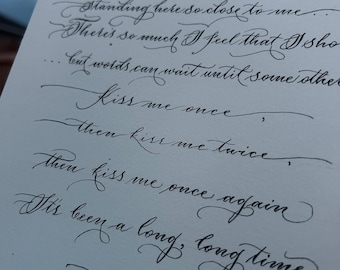 Standing here so close to me ...
There's so much I feel that I sho
... but words can wait until some other
Kiss me once,
then kiss me twice,
then kiss me once again
It's been a long, long time